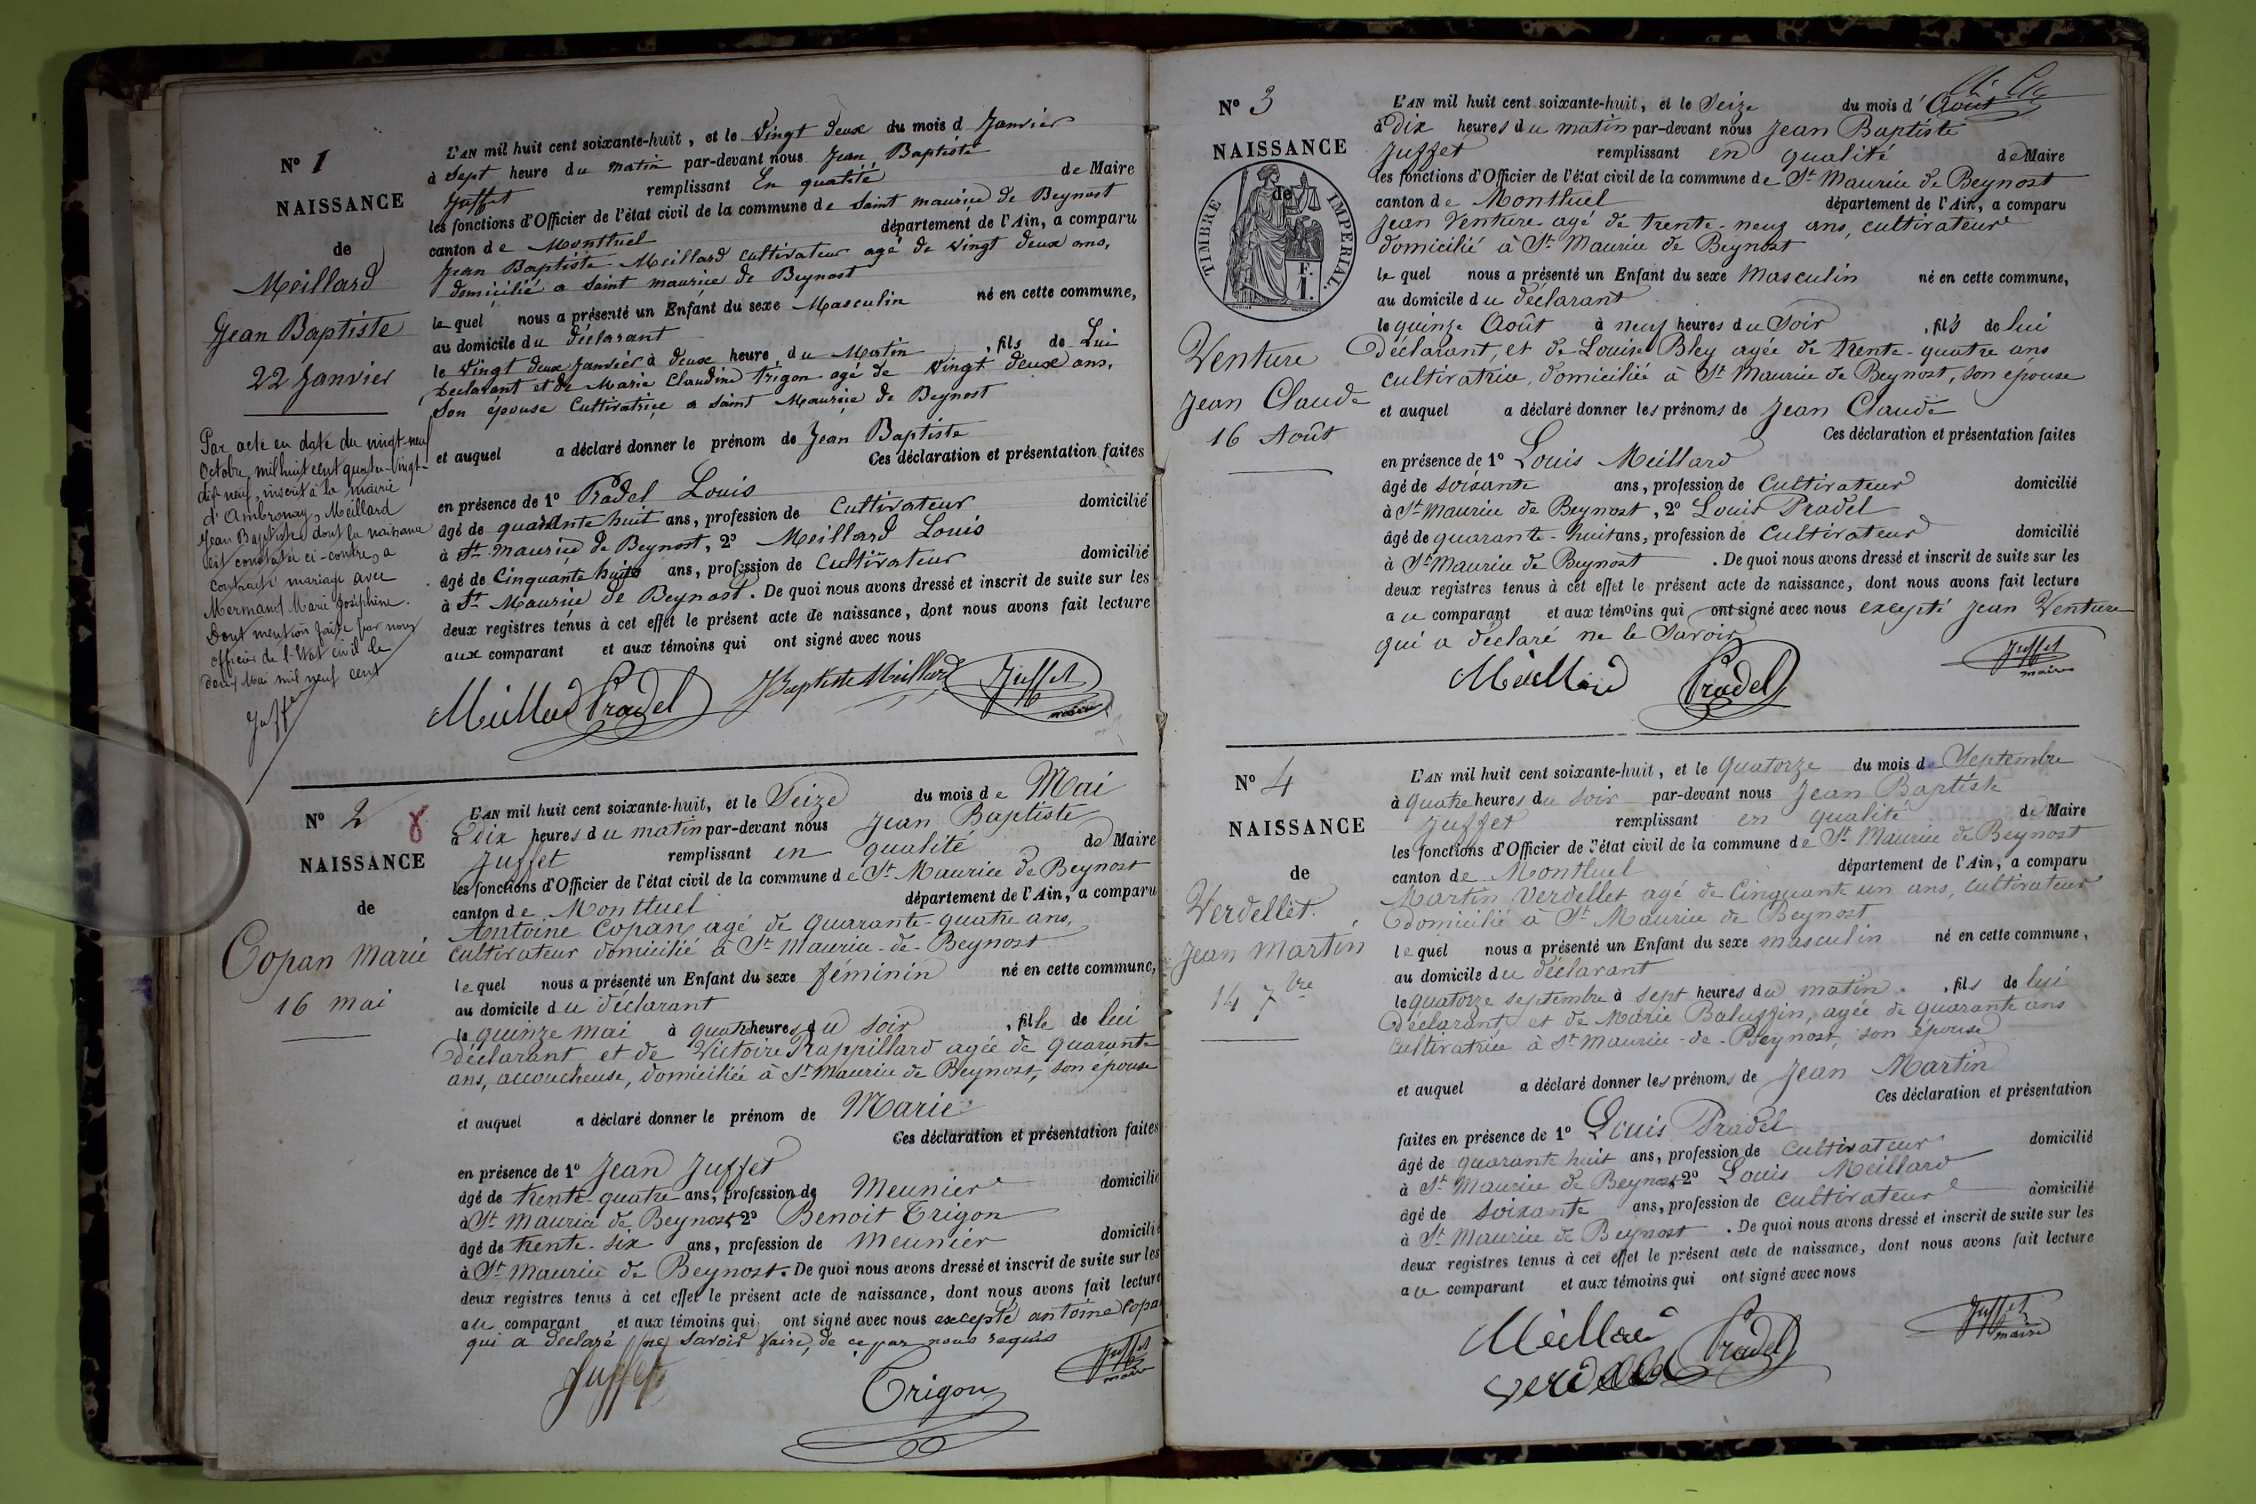 Nº 1
NAISSANCE
de
Meillard
Jean Baptiste
22 Janvier
Par acte en date du vingt-neuf
Octobre, mil huit cent quatre-vingt-
dix neuf, inscrit à la mairie
d'Ambronay, Meillard
Jean Baptiste dont la naissance
est constatée ci-contre, a
contracté mariage avec
Mermand Marie Joséphine.
Dont mention faite par nous
officier de l'Etat civil le
douze Mai mil neuf cent
Juffet
L'AN mil huit cent soixante-huit, et le Vingt deux du mois d Janvier
à sept heure du matin par-devant nous Jean, Baptiste
Juffet remplissant En qualité de Maire
les fonctions d'Officier de l'état civil de la commune de Saint maurice de Beynost
canton de Montluel département de l'Ain, a comparu
Jean Baptiste Meillard cultivateur agé de vingt deux ans,
domicilié a Saint maurice de Beynost
lequel nous a présenté un Enfant du sexe Masculin né en cette commune,
au domicile du déclarant
le Vingt deux Janvier à deux heure du Matin, fils de Lui
Declarant et de Marie Claudine Trigon agé de Vingt deux ans,
Son épouse Cultivatrice a saint Maurice de Beynost
et auquel a déclaré donner le prénom de Jean Baptiste
Ces déclaration et présentation faites
en présence de 1º Pradel Louis
âgé de quarante huit ans, profession de Cultivateur domicilié
à St maurice de Beynost, 2º Meillard Louis
âgé de Cinquante huit ans, profession de Cultivateur domicilié
à St Maurice de Beynost. De quoi nous avons dressé et inscrit de suite sur les
deux registres tenus à cet effet le présent acte de naissance, dont nous avons fait lecture
aux comparant et aux témoins qui ont signé avec nous
Meillard Pradel JBaptiste Meillard Juffet
maire
Nº 2 8
NAISSANCE
de
Copan Marie
16 mai
L'AN mil huit cent soixante-huit, et le Seize du mois de Mai
à dix heures du matin par-devant nous Jean Baptiste
Juffet remplissant en qualité de Maire
les fonctions d'Officier de l'état civil de la commune de St Maurice de Beynost
canton de Montluel département de l'Ain, a comparu
Antoine Copan, agé de quarante-quatre ans,
cultivateur domicilié à St Maurice-de-Beynost
lequel nous a présenté un Enfant du sexe féminin né en cette commune,
au domicile du déclarant
le quinze mai à quatre heures du soir, fille de lui
Déclarant et de Victoire Rappillard agée de quarante
ans, accoucheuse, domiciliée à St Maurice de Beynost, son épouse
et auquel a déclaré donner le prénom de Marie
Ces déclaration et présentation faites
en présence de 1º Jean Juffet
âgé de trente-quatre ans, profession de Meunier domicilié
à St Maurice de Beynost 2º Benoit Trigon
âgé de trente-six ans, profession de meunier domicilié
à St Maurice de Beynost. De quoi nous avons dressé et inscrit de suite sur les
deux registres tenus à cet effet le présent acte de naissance, dont nous avons fait lecture
au comparant et aux témoins qui ont signé avec nous excepté antoine Copan
qui a déclaré ne savoir faire, de ce par nous requis
Juffet Trigon Juffet
maire
Nº 3
NAISSANCE
de
TIMBRE IMPÉRIAL.
F.
1.
Venture
Jean Claude
16 Août
L'AN mil huit cent soixante-huit, et le Seize du mois d'Août
à Dix heures du matin par-devant nous Jean Baptiste
Juffet remplissant en qualité de Maire
les fonctions d'Officier de l'état civil de la commune de St Maurice de Beynost
canton de Montluel département de l'Ain, a comparu
Jean Venture agé de trente-neuf ans, cultivateur
domicilié à St Maurice de Beynost
lequel nous a présenté un Enfant du sexe Masculin né en cette commune,
au domicile du déclarant
le quinze Août à neuf heures du Soir, fils de lui
Déclarant, et de Louise Bley agée de trente-quatre ans
cultivatrice, domiciliée à St Maurice de Beynost, son epouse
et auquel a déclaré donner les prénoms de Jean Claude
Ces déclaration et présentation faites
en présence de 1º Louis Meillard
âgé de soixante ans, profession de Cultivateur domicilié
à St Maurice de Beynost, 2º Louis Pradel
âgé de quarante-huit ans, profession de Cultivateur domicilié
à St Maurice de Beynost. De quoi nous avons dressé et inscrit de suite sur les
deux registres tenus à cet effet le présent acte de naissance, dont nous avons fait lecture
au comparant et aux témoins qui ont signé avec nous excepté Jean Venture
qui a déclaré ne le Savoir
Meillard Pradel Juffet
maire
Nº 4
NAISSANCE
de
Verdellet
Jean Martin
14 7bre
L'AN mil huit cent soixante-huit, et le Quatorze du mois de Septembre
à quatre heures du soir par-devant nous Jean Baptiste
Juffet remplissant en qualité de Maire
les fonctions d'Officier de l'état civil de la commune de St Maurice de Beynost
canton de Montluel département de l'Ain, a comparu
Martin Verdellet agé de Cinquante un ans, cultivateur
Domicilié à St Maurice de Beynost
lequel nous a présenté un Enfant du sexe masculin né en cette commune,
au domicile du déclarant
le quatorze septembre à sept heures du matin, fils de lui
Déclarant, et de Marie Baluffin, agée de quarante ans
Cultivatrice à St Maurice-de-Beynost, son épouse
et auquel a déclaré donner les prénoms de Jean Martin
Ces déclaration et présentation
faites en présence de 1º Louis Pradel
âgé de quarante huit ans, profession de Cultivateur domicilié
à St Maurice de Beynost 2º Louis Meillard
âgé de soixante ans, profession de cultivateur domicilié
à St Maurice de Beynost. De quoi nous avons dressé et inscrit de suite sur les
deux registres tenus à cet effet le présent acte de naissance, dont nous avons fait lecture
au comparant et aux témoins qui ont signé avec nous
Meillard Pradel Juffet
maire
verdellet